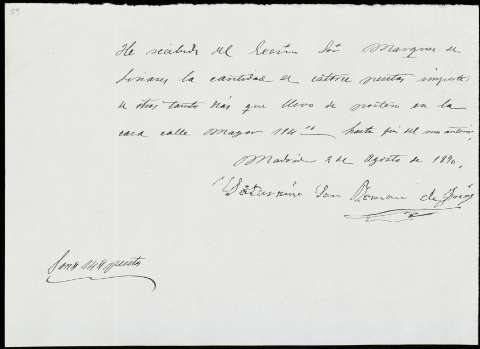 He recibido del Excmo Sor Marques de
Linares la cantidad de catorce pesetas importe
de otros tantos dias que llevo de portero en la
casa calle Mayor hasta fin del mes anterior.
Madrid 2 de Agosto de 1890.
Saturnino San Roman de
Son 14 pesetas